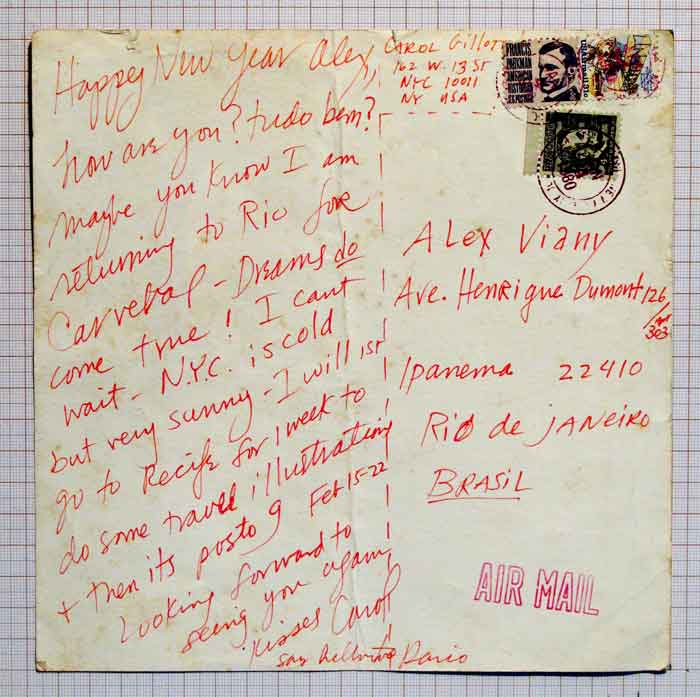 Happy New Year Alex,
how are you? tudo bem?
maybe you know I am
returning to Rio for
Carnebal - Dreams do
come true! I cant
wait - N.Y.C. is cold
but very sunny - I will 1st
go to Recife for 1 week to
do some travel illustration
+ then its posto 9 Feb 15-22
Looking forward to
seeing you again
Kisses Carol
say hello to Dario
CAROL Gillott
162 W. 13 ST
NYC 10011
NY USA
FRANCIS
PARKMAN
AMERICAN
HISTORIAN
US POSTAGE
80
Alex Viany
Ave. Henrique Dumont 126
/apt 303
Ipanema 22410
Rio de JANEIRO
BRASIL
AIR MAIL